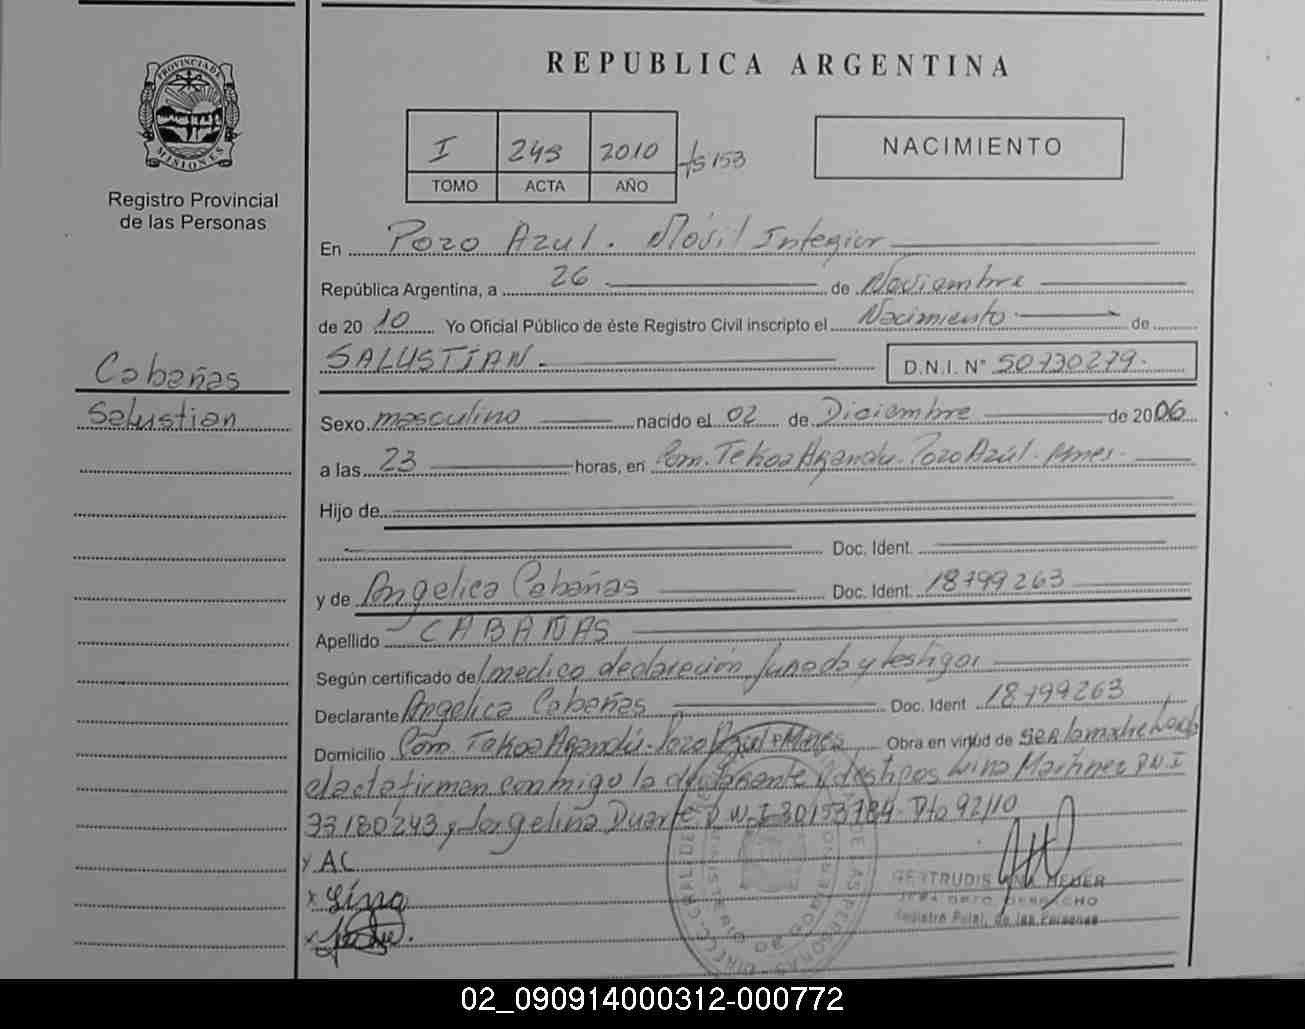 REPUBLICA ARGENTINA
PROVINCIA DE
MISIONES
Registro Provincial
de las Personas
I 248 2010 fs 153
TOMO ACTA AÑO
NACIMIENTO
En Pozo Azul. Móvil Interior
República Argentina, a 26 de Noviembre
de 2010 Yo Oficial Público de éste Registro Civil inscripto el Nacimiento de
SALUSTIAN. D.N.I. N° 50730279.
Cabañas
Salustian
Sexo masculino nacido el 02 de Diciembre de 2006
a las 23 horas, en Com. Tekoa Arandu. Pozo Azúl. Mnes.
Hijo de
Doc. Ident.
y de Angelica Cabañas Doc. Ident. 18799263
Apellido CABAÑAS
Según certificado de medico declaración Jurada y testigos
Declarante Angelica Cabañas Doc. Ident 18799263
Domicilio Com. Tekoa Arandú. Pozo Azul Mnes Obra en virtud de ser la madre
el acta firman conmigo la declarante y testigos Lina Martinez D.N.I
33180243 y Jorgelina Duarte D.N.I 30153784. Dto 92/10
x AC
x Lina
x
GERTRUDIS ANA HEUER
JEFA DPTO DERECHO
Registro Pcial. de las Personas
02_090914000312-000772